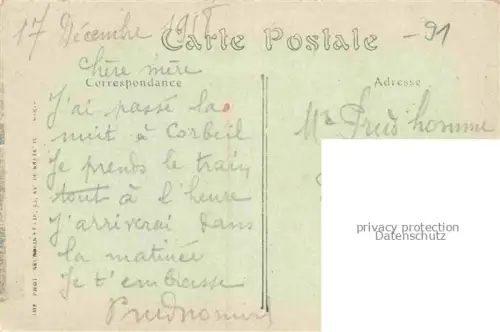 17 Décembre 191
Carte Postale
-91
chère mère
Correspondance
Adresse
J'ai passé la
nuit à Corbeil
Je prends le train
tout à l'heure
J'arriverai dans
la matinée
Je t'embrasse
Prudhomme
Prud'homme
privacy protection
Datenschutz